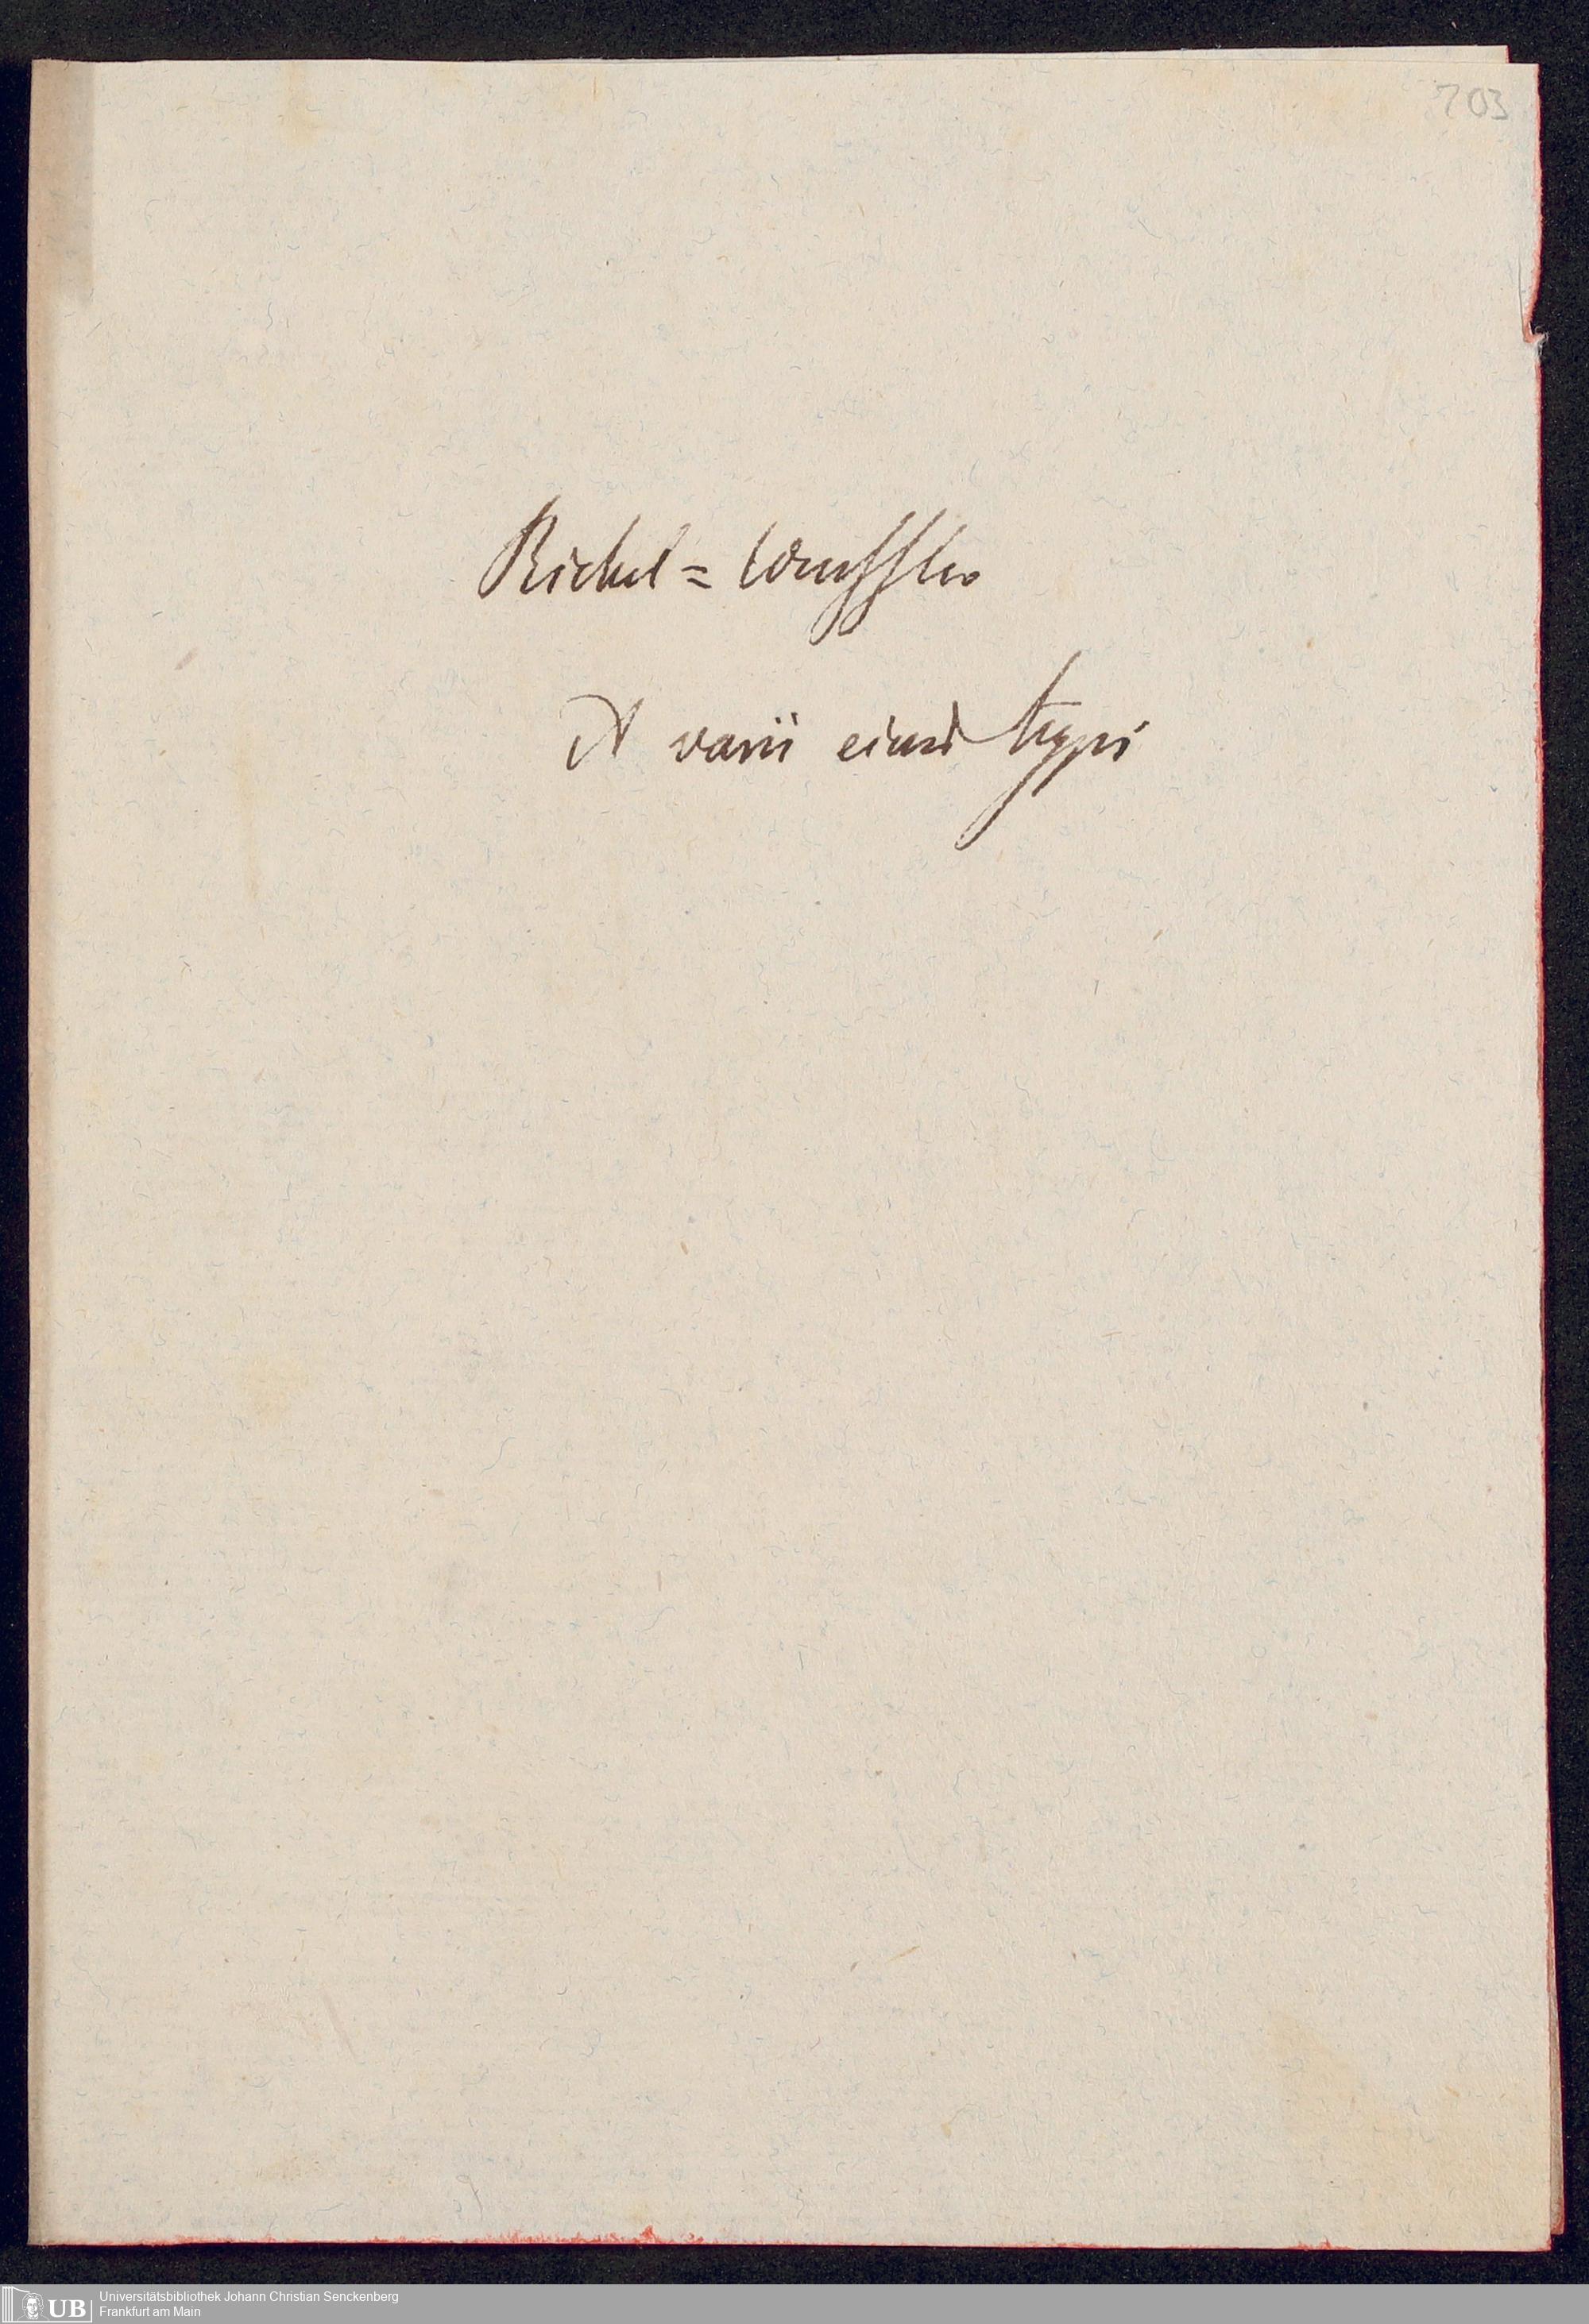 703
Richel = Wenssler
et varii eiusd typi
Universitätsbibliothek Johann Christian Senckenberg
UB Frankfurt am Main